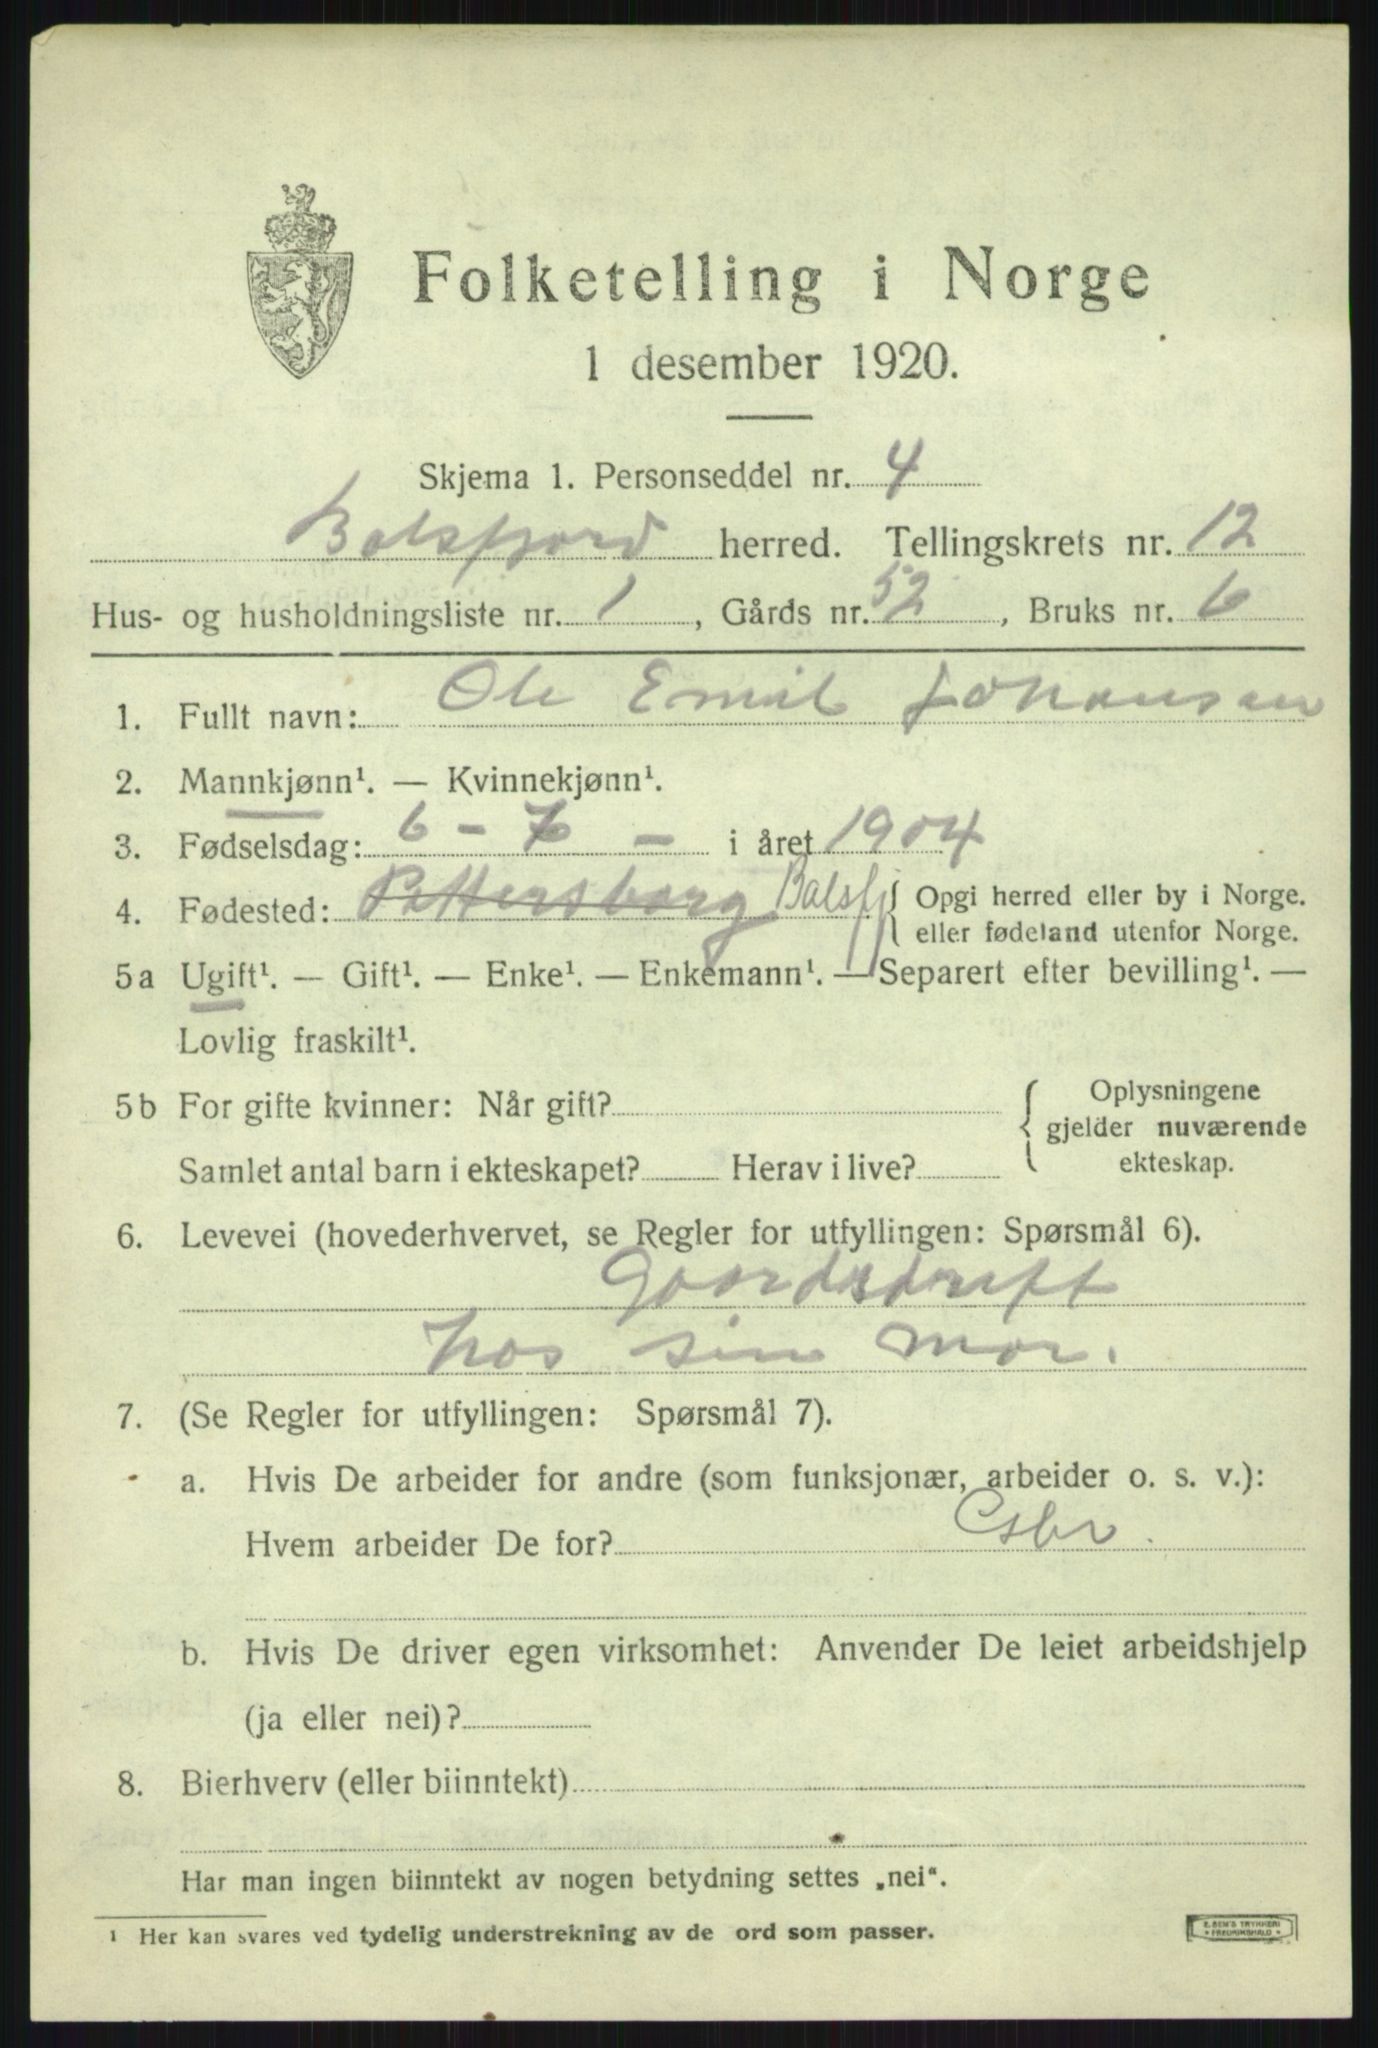 Folketelling i Norge
1 desember 1920.
Skjema 1. Personseddel nr. 4
Balsfjord herred. Tellingskrets nr. 12
Hus- og husholdningsliste nr. 1, Gårds nr. 52, Bruks nr. 6
1. Fullt navn: Ole Emil Johansen
2. Mannkjønn¹. — Kvinnekjønn¹.
3. Fødselsdag: 6 - 7 - i året 1904
4. Fødested: Pettersborg Balsfj { Opgi herred eller by i Norge.
eller fødeland utenfor Norge.
5a Ugift¹. — Gift¹. — Enke¹. — Enkemann¹. — Separert efter bevilling¹. —
Lovlig fraskilt¹.
5b For gifte kvinner: Når gift? { Oplysningene
gjelder nuværende
Samlet antal barn i ekteskapet? Herav i live? ekteskap.
6. Levevei (hovederhvervet, se Regler for utfyllingen: Spørsmål 6).
Gaardsdrift
hos sin mor.
7. (Se Regler for utfyllingen: Spørsmål 7).
a. Hvis De arbeider for andre (som funksjonær, arbeider o. s. v.):
Hvem arbeider De for?
b. Hvis De driver egen virksomhet: Anvender De leiet arbeidshjelp
(ja eller nei)?
8. Bierhverv (eller biinntekt)
Har man ingen biinntekt av nogen betydning settes „nei“.
¹ Her kan svares ved tydelig understrekning av de ord som passer.
E. SEM'S TRYKKERI
• FREDRIKSHALD •